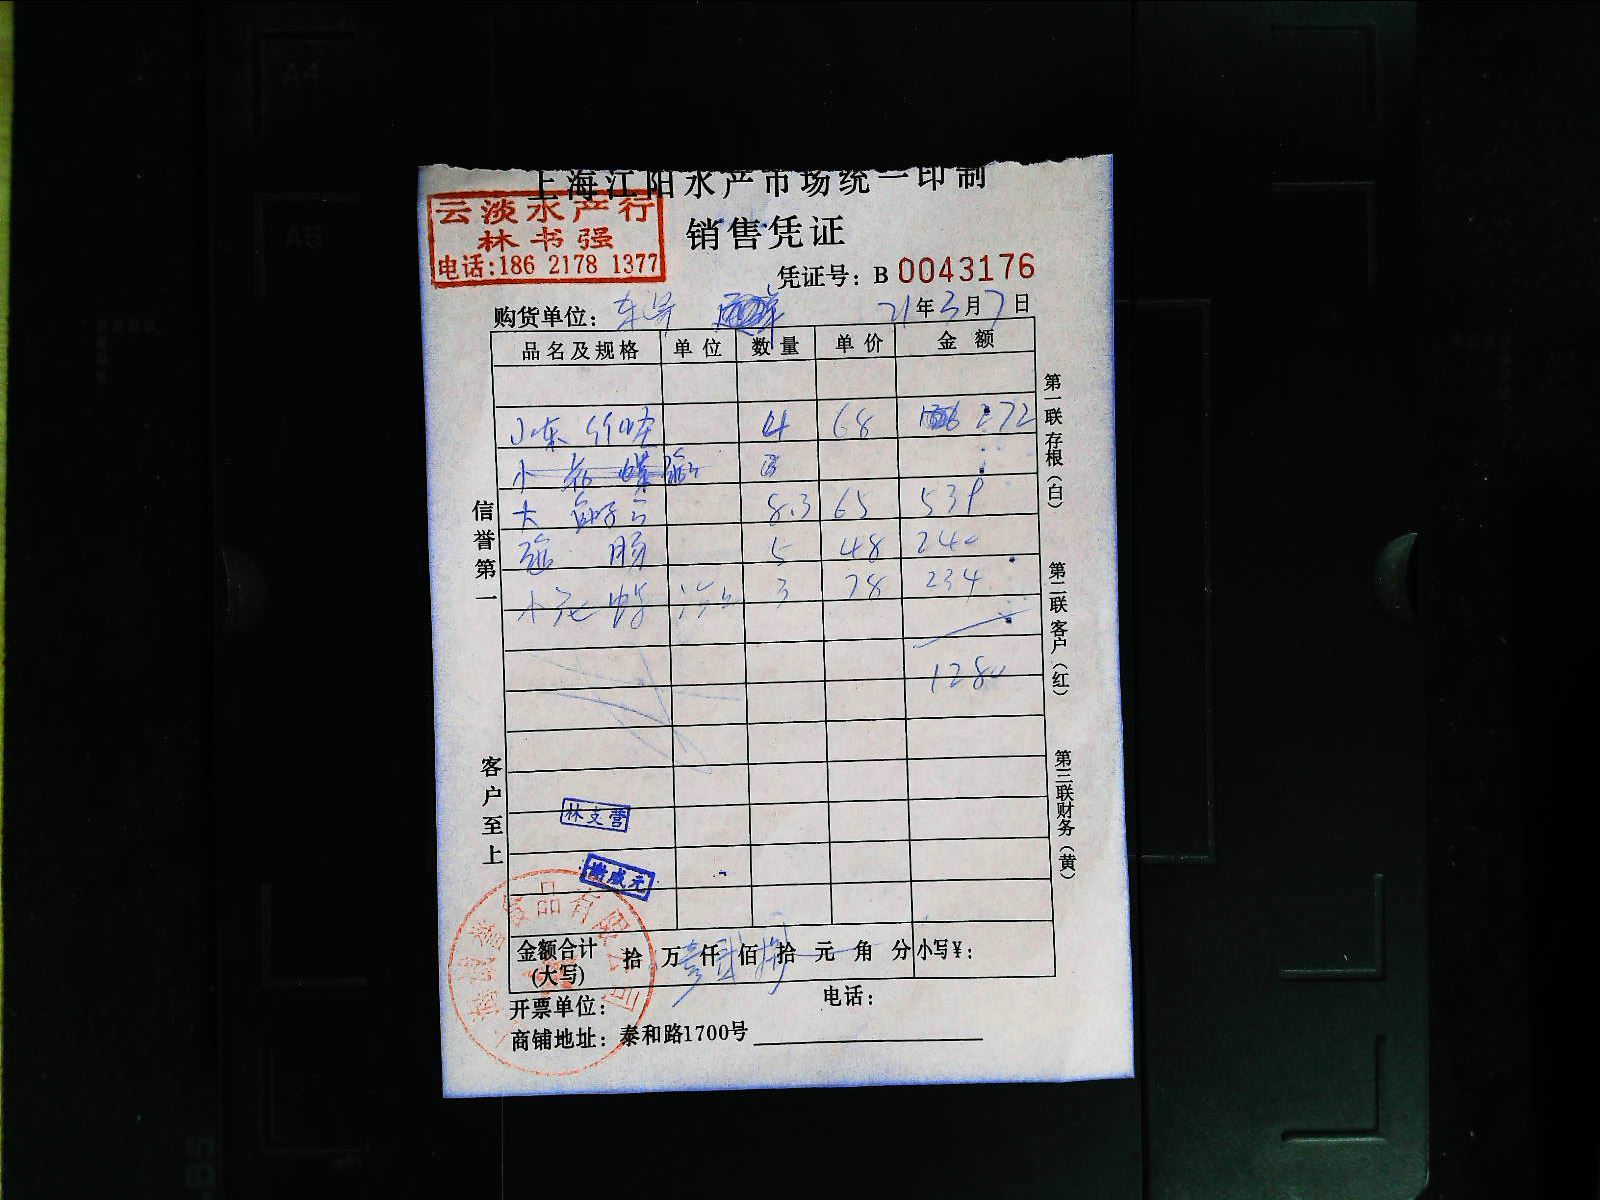 上海江阳水产市场统一印制
云淡水产行
林书强
电话:186 2178 1377
销售凭证
凭证号: B 0043176
购货单位:
21年3月7日
品名及规格 单位 数量 单价 金额
4 68 272
小花
大 8.3 65 539
肠 5 48 240
小花 3 78 234
1280
信誉第一
客户至上
第一联存根(白)
第二联客户(红)
第三联财务(黄)
林支营
谢成元
食品有限公司
金额合计(大写) 拾 万 仟 佰 拾 元 角 分 小写¥:
开票单位: 电话:
商铺地址: 泰和路1700号
A4
A5
B5